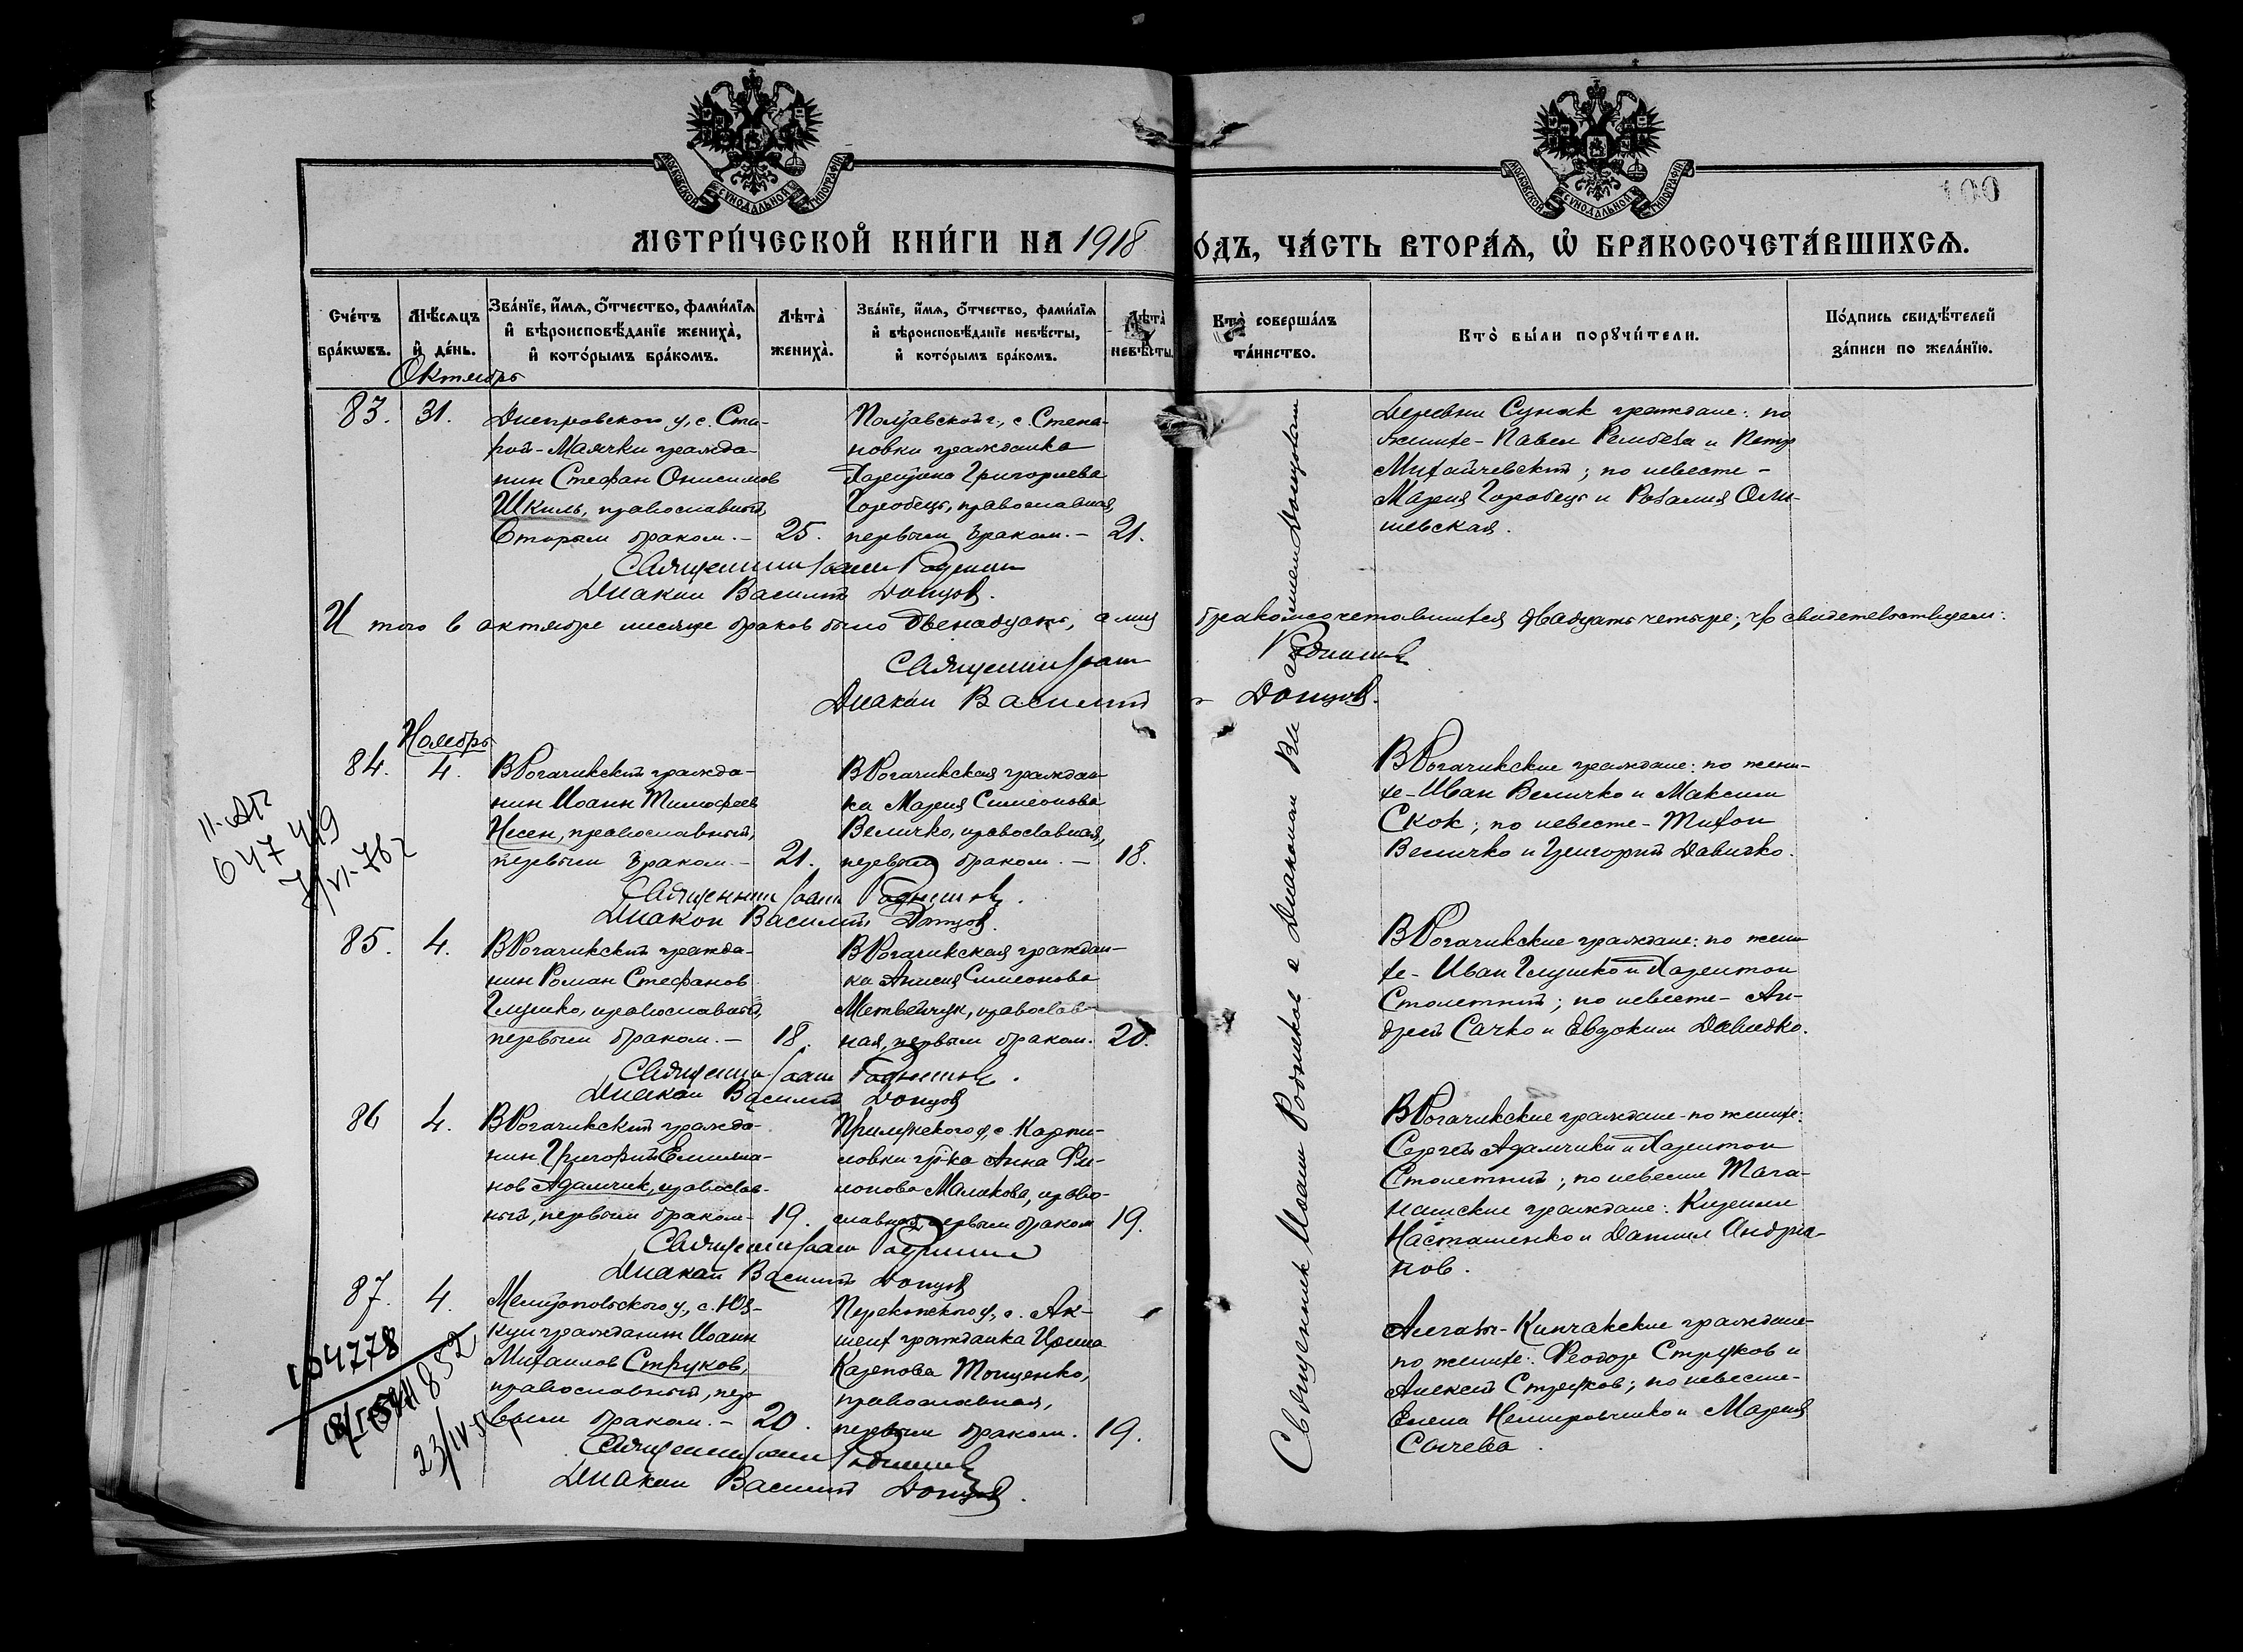 МОСКОВСКОЙ СѴНОДАЛЬНОЙ ТИПОГРАФІИ
МОСКОВСКОЙ СѴНОДАЛЬНОЙ ТИПОГРАФІИ
100
МЕТРИ́ЧЕСКОЙ КНИ́ГИ НА 1918
О́ДЪ, ЧА́СТЬ ВТОРА́Ѧ, Ѽ БРАКОСОЧЕТА́ВШИХСѦ.
Сче́тъ бра́кѡвъ.
Мѣ́сѧцъ и҆ де́нь.
Зва́нїе, и҆́мѧ, ѻ҆́тчество, фами́лїѧ и҆ вѣроисповѣ́данїе жениха̀, и҆ кото́рымъ бра́комъ.
Лѣта̀ жениха̀.
Зва́нїе, и҆́мѧ, ѻ҆́тчество, фами́лїѧ и҆ вѣроисповѣ́данїе невѣ́сты, и҆ кото́рымъ бра́комъ.
Лѣта̀ невѣ́сты.
Кто̀ соверша́лъ та́инство.
Кто̀ бы́ли порꙋчи́тели.
По́дпись свидѣ́телей за́писи по жела́нїю.
Октябрь
83.
31.
Днепровского у, с. Ста-
рой-Маячки гражда-
нин Стефан Онисимов
Шкиль, православный,
Вторым браком. - 25.
Полтавской г., с. Степа-
новки гражданка
Харитина Григориева
Горобець, православная,
первым браком. - 21.
Деревни Сунак граждане: по
женихе - Павел и Петр
Михайчевский; по невесте -
Мария Горобець и Розалия Оли-
шевская.
Священник Иоанн Родников
Диакон Василий Донцов.
Итого в октябре месяце браков было двенадцать, а лиц бракомсочетавшихся двадцать четыре; что свидетельствуем:
Священник Иоанн Родников
Диакон Василий Донцов.
Ноябрь
84.
4.
В Рогачикский гражда-
нин Иоанн Тимофеев
Несен, православный,
первым браком. - 21.
В Рогачикская граждан-
ка Мария Симеонова
Величко, православная,
первым браком. - 18.
В Рогачикские граждане: по жени-
хе - Иван Величко и Максим
Скок; по невесте - Тихон
Величко и Григорий Давидко.
Священник Иоанн Родников.
Диакон Василий Донцов.
11-АП
647449
7/VI-76 г
85.
4.
В Рогачикский гражда-
нин Роман Стефанов
Глушко, православный,
первым браком. - 18.
В Рогачикская граждан-
ка Анисия Симеонова
Матвейчук, православ-
ная, первым браком. 20.
В Рогачикские граждане: по жени-
хе - Иван Глушко и Харитон
Столетний; по невесте - Ан-
дрей Сачко и Евдоким Давидко.
Священник Иоанн Родников.
Диакон Василий Донцов
86
4.
В Рогачикский гражда-
нин Григорий Емилиа-
нов Адамчик, православ-
ный, первым браком - 19.
Прилукского у, с. Карпи-
ловки гр-ка Анна Фи-
монова Малахова, право-
славная, первым браком 19.
В Рогачикские граждане - по женихе:
Сергей Адамчик и Харитон
Столетний; по невесте
граждане:
Насташенко и Даниил Андриа-
нов.
Священник Иоанн Родников
Диакон Василий Донцов
87.
4.
Мелитопольского у, с. Юз-
куи гражданин Иоанн
Михаилов Струков,
православный, пер-
вым браком. - 20.
Перекопского у, с. Ак-
шеих гражданка Ирина
Карпова Тощенко,
православная,
первым браком. 19.
Алгаз-Кипчакские граждане
по женихе: Феодор Струков и
Алексей Струков; по невесте -
Елена и Мария
Сычева.
Священник Иоанн Родников
Диакон Василий Донцов.
104778
23/IV
Священник Иоанн Родников с Диаконом Василием Донцовым